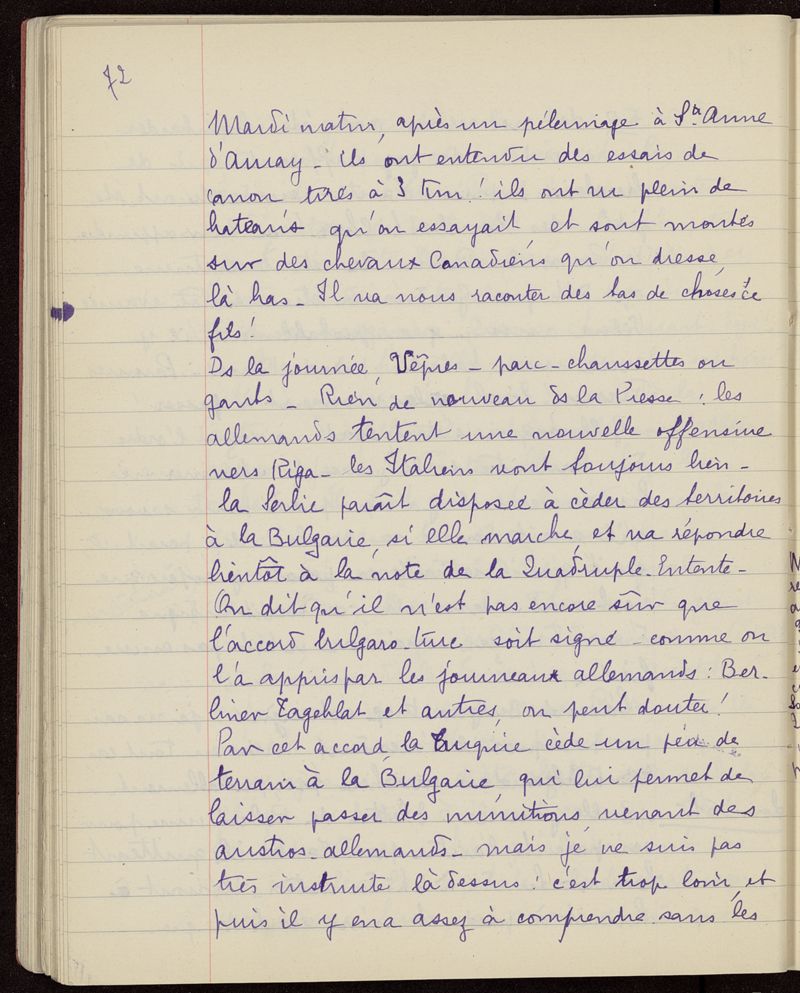 72
Mardi matin, après un pélerinage à Ste Anne
d'Auray - ils ont entendu des essais de
canon tirés à 3 Km! ils ont vu plein de
bateaux qu'on essayait et sont montés
sur des chevaux Canadiens qu'on dresse
là bas - Il va nous raconter des tas de choses ce
fils!
Ds la journée, Vêpres - parc - chaussettes ou
gants - Rien de nouveau ds la Presse : les
allemands tentent une nouvelle offensive
vers Riga - les Italiens vont toujours bien -
la Serbie paraît disposée à cèder des territoires
à la Bulgarie, si elle marche, et va répondre
bientôt à la note de la Quadruple-Entente -
On dit qu'il n'est pas encore sûr que
l'accord bulgaro-turc soit signé - comme on
l'a appris par les journaux allemands : Ber-
liner Tageblat et autres, on peut douter!
Par cet accord, la Turquie cède un peu de
terrain à la Bulgarie, qui lui permet de
laisser passer des munitions venant des
austros-allemands - mais je ne suis pas
très instruite là dessus : c'est trop loin, et
puis il y en a assez à comprendre sans les